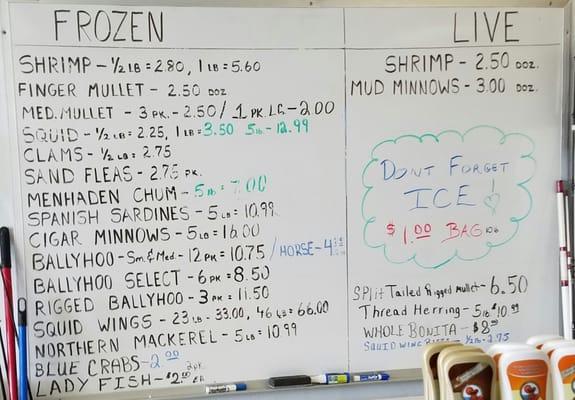 FROZEN
SHRIMP - 1/2 LB = 2.80, 1 LB = 5.60
FINGER MULLET - 2.50 DOZ
MED. MULLET - 3 PK. - 2.50 / 1 PK. LG - 2.00
SQUID - 1/2 LB = 2.25, 1 LB = 3.50 5 LB - 12.99
CLAMS - 1/2 LB = 2.75
SAND FLEAS - 2.75 PK.
MENHADEN CHUM - 5 LB = 7.00
SPANISH SARDINES - 5 LB = 10.99
CIGAR MINNOWS - 5 LB = 16.00
BALLYHOO - Sm. & Med. - 12 PK = 10.75 / HORSE - 4
BALLYHOO SELECT - 6 PK = 8.50
RIGGED BALLYHOO - 3 PK = 11.50
SQUID WINGS - 23 LB - 33.00, 46 LB = 66.00
NORTHERN MACKEREL - 5 LB = 10.99
BLUE CRABS - 2.00 2 PK
LADY FISH - $2.00 EA
LIVE
SHRIMP - 2.50 DOZ.
MUD MINNOWS - 3.00 DOZ.
DONT FORGET
ICE!
$1.00 BAG 10 lb
SPlit Tailed Rigged Mullet - 6.50
Thread Herring - 5 lb $10.99
WHOLE BONITA - $8.00
SQUID WING 1/2 - 2.75